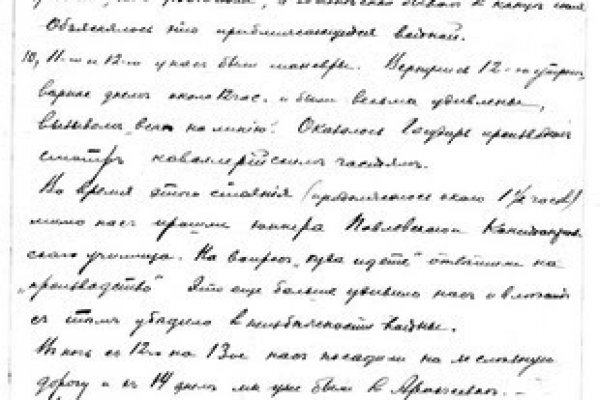 Объяснялось это приближающейся войной.
10, 11-го и 12-го у нас были маневры. Вернулись 12-го утром,
вернее днем около 12 час. и были весьма удивлены,
вызовом „всех на линию". Оказалось Государь производит
смотр кавалерийским частям.
Во время этого стояния (продолжалось около 1½ часов)
мимо нас прошли юнкера Павловского
училища. На вопрос „куда идете" отвѣтили на
„производство" Это еще больше удивило нас и
с тѣмъ убедило в неизбежности войны.
В ночь с 12го на 13ое нас посадили на железную
дорогу и к 14 днем мы уже были в